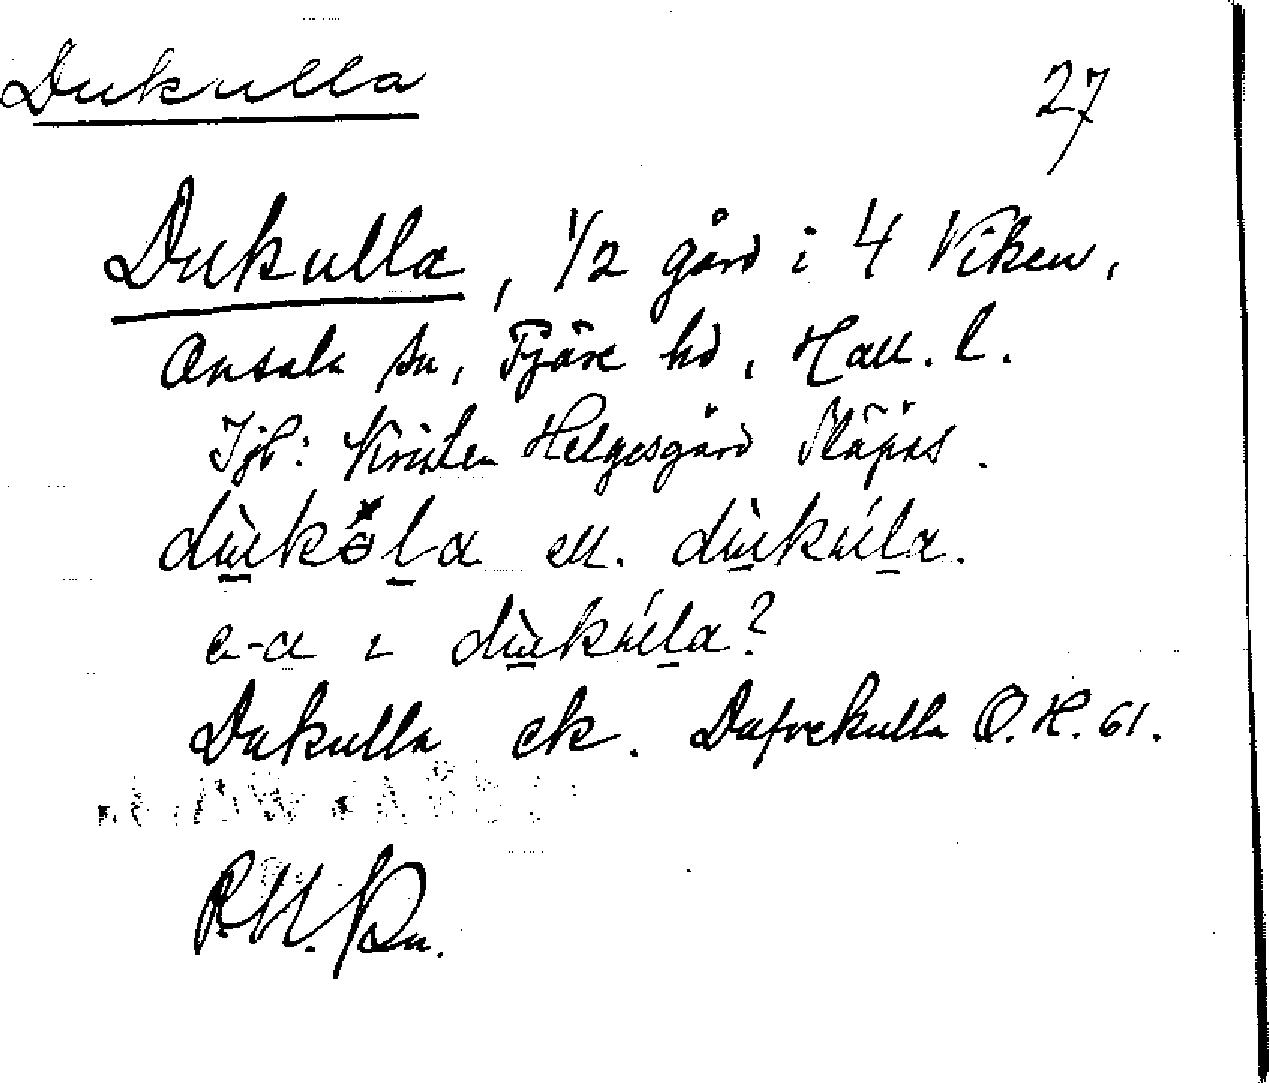 Dukulla 27
Dukulla, 1/2 gård i 4 Viken,
Onsala sn, Fjäre hd, Hall. l.
Tjb: Kristen Helgesgård Släps.
dùkòla ell. dùkúla.
a-a i dùkúla?
Dukulla ek. Dufvekulla O.H. 61.